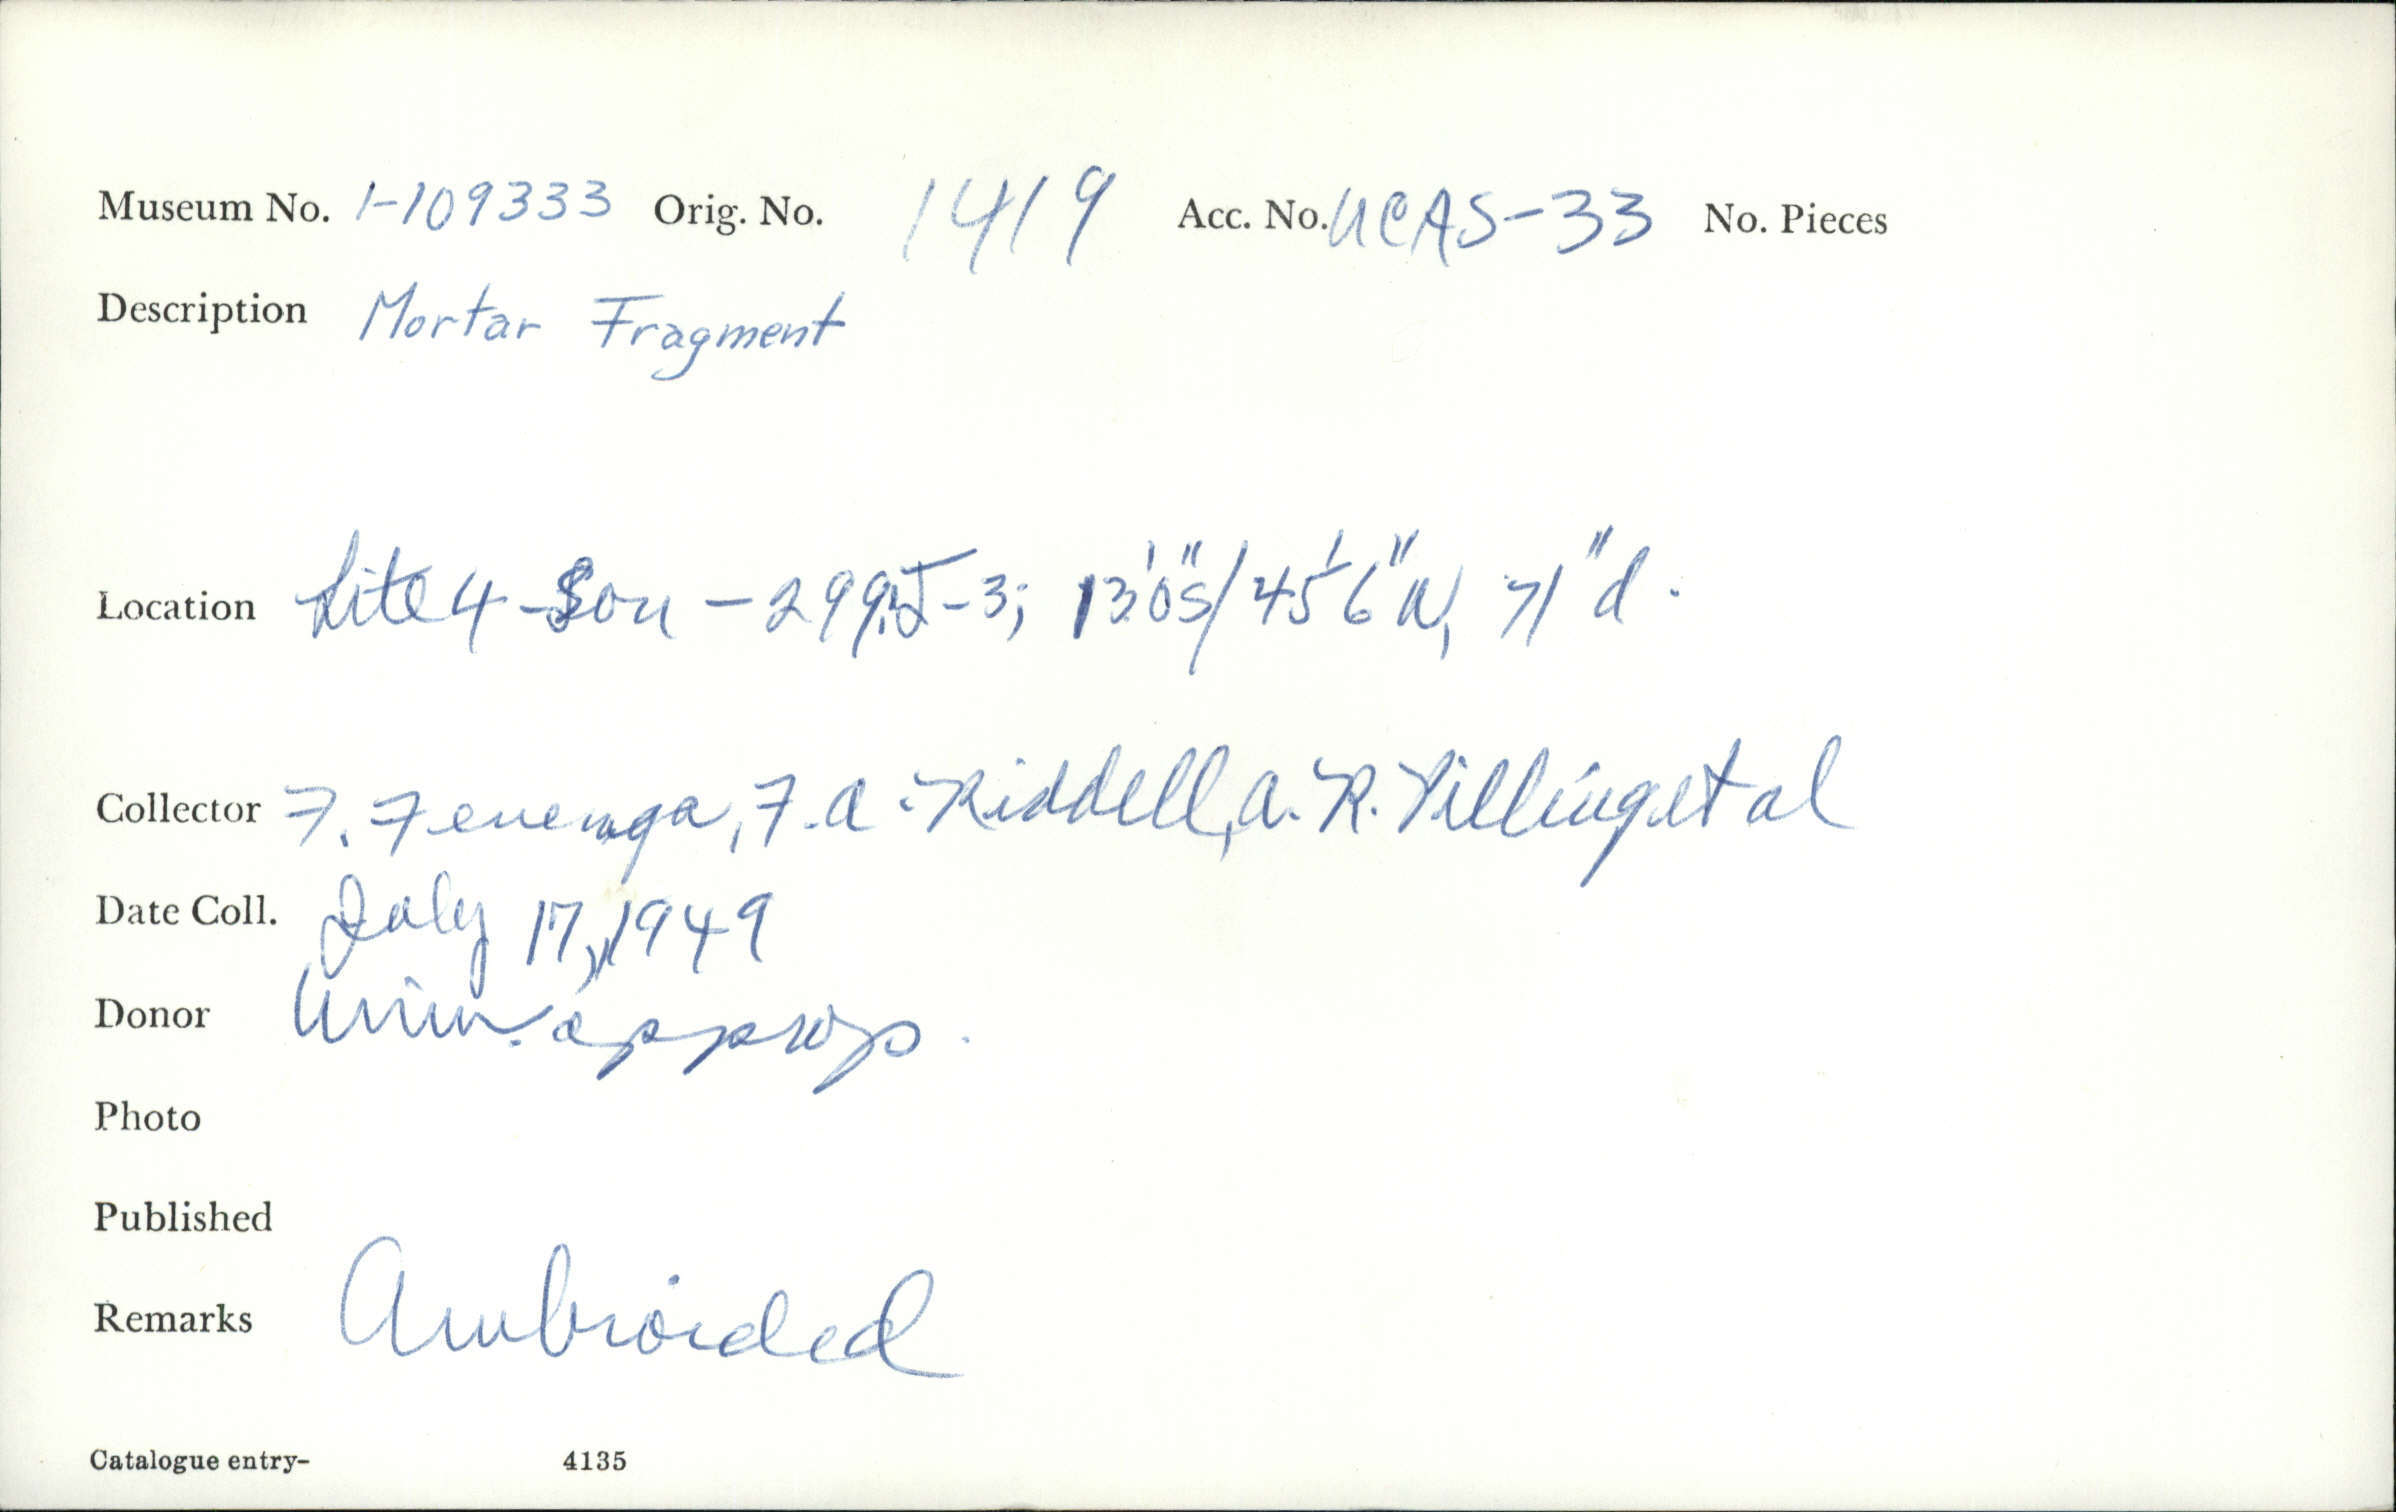 Museum No. 1-109333 Orig. No. 1419 Acc. No. UCAS-33 No. Pieces
Description Mortar Fragment
Location Site 4-Son-299, J-3; 13'0"S/45'6"W, 71"d.
Collector F. Fenenga, F. A. Riddell, A. R. Pilling et al
Date Coll. July 17, 1949
Donor Univ. approp.
Photo
Published
Remarks Ambroided
Catalogue entry- 4135